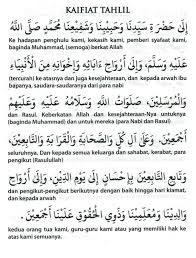 KAIFIAT TAHLIL
إِلَى حَضْرَةِ سَيِّدِنَا وَحَبِيْبِنَا وَشَفِيْعِنَا مُحَمَّدٍ صَلَّى اللَّهُ
Ke hadapan penghulu kami, kekasih kami, pemberi syafaat kami, baginda Muhammad, (semoga) berkat Allah
عَلَيْهِ وَسَلَّمَ، وَإِلَى أَرْوَاحِ آبَائِهِ وَإِخْوَانِهِ مِنَ الْأَنْبِيَاءِ
(tercurah) ke atasnya dan juga kesejahteraan, dan kepada arwah ibu bapanya, saudara-saudaranya dari para nabi
وَالْمُرْسَلِيْنَ، صَلَوَاتُ اللَّهِ وَسَلَامُهُ عَلَيْهِ وَعَلَيْهِمْ
dan Rasul. Keberkatan Allah dan kesejahteraan-Nya untuknya (baginda Muhammad) dan untuk mereka (para Nabi dan Rasul)
أَجْمَعِيْنَ. وَعَلَى آلِ كُلٍّ وَالصَّحَابَةِ وَالْقَرَابَةِ وَالتَّابِعِيْنَ،
seluruhnya. Dan kepada semua keluarga dan sahabat, kerabat, para pengikut (Rasulullah)
وَتَابِعِ التَّابِعِيْنَ بِإِحْسَانٍ إِلَى يَوْمِ الدِّيْنِ، وَإِلَى أَرْوَاحِ
dan pengikut-pengikut berikutnya dengan baik hingga hari kiamat, dan kepada arwah
وَالِدِيْنَا وَمُعَلِّمِيْنَا وَذَوِي الْحُقُوْقِ عَلَيْنَا أَجْمَعِيْنَ.
kedua orang tua kami, guru-guru kami atau yang memiliki hak ke atas kami semuanya.